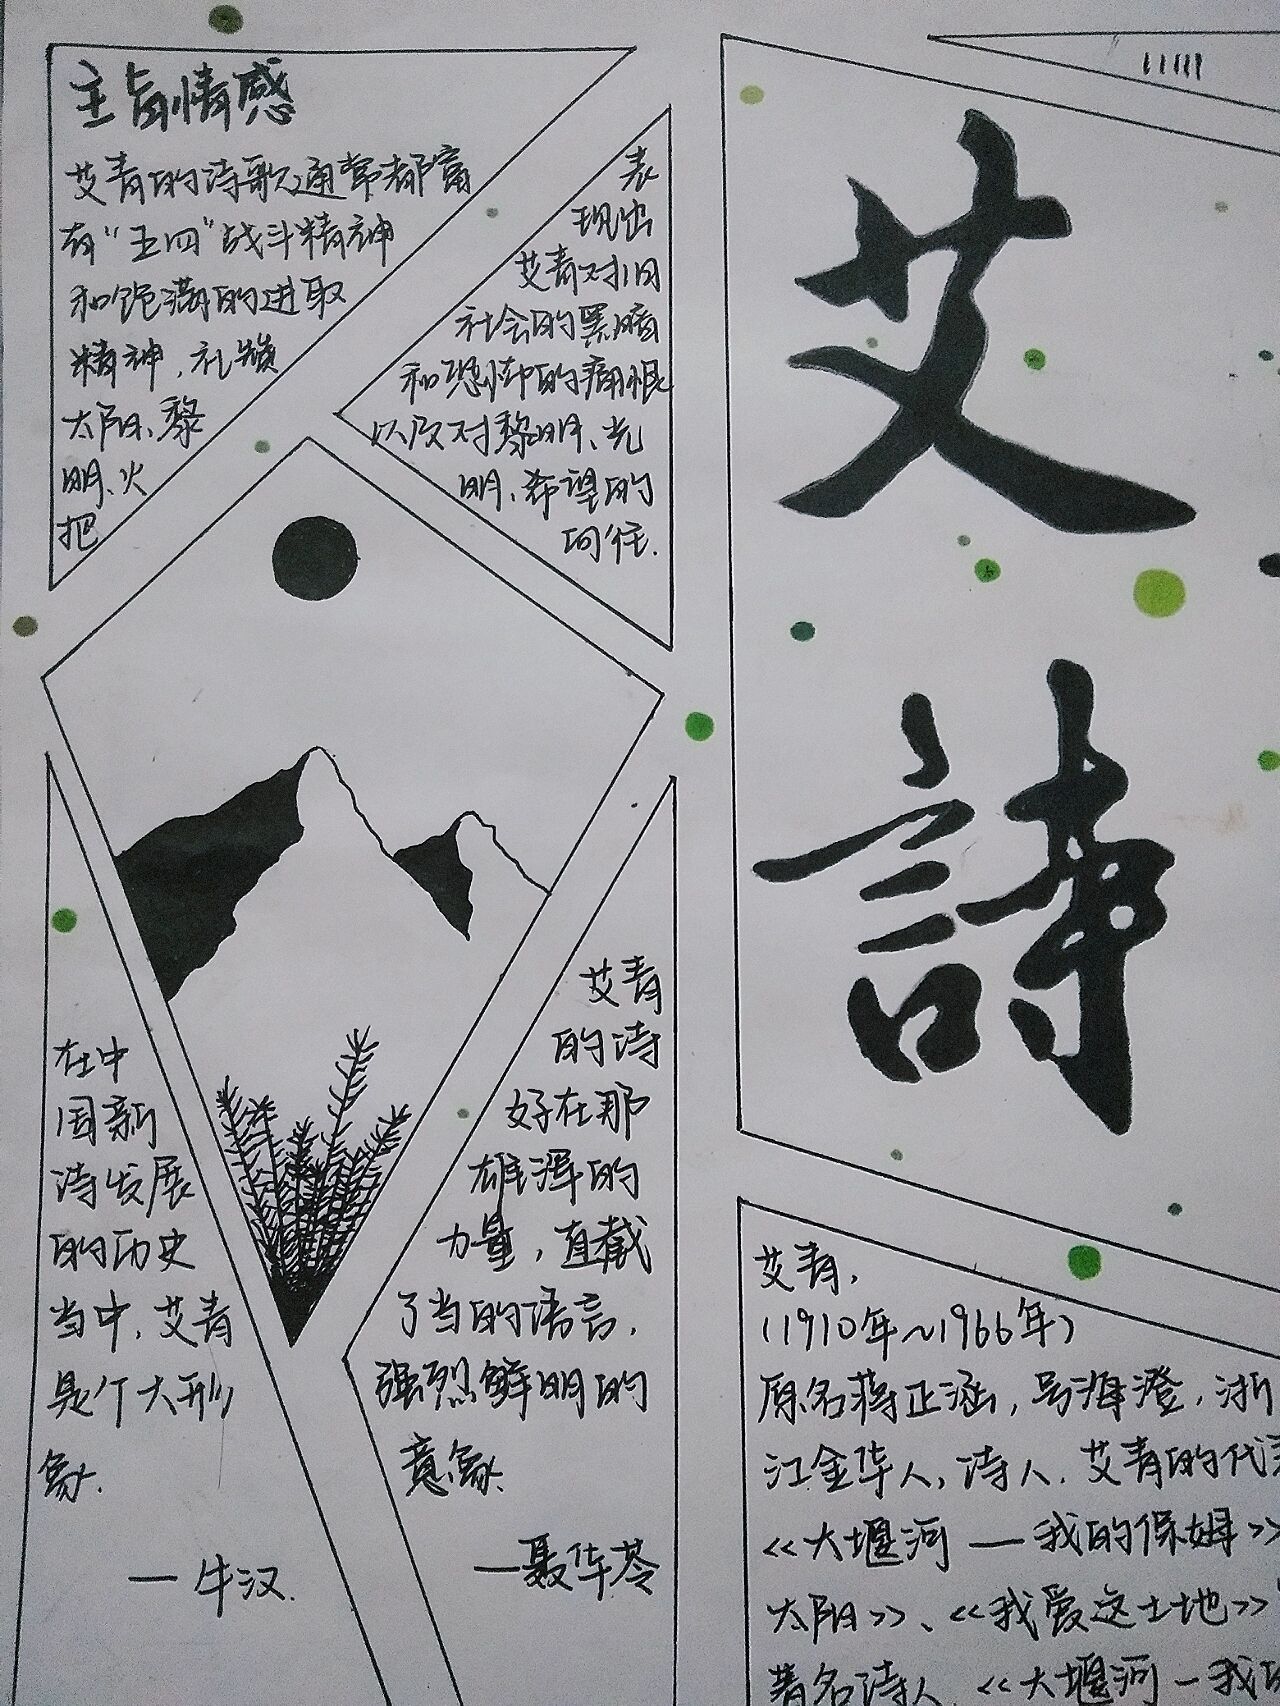 主旨情感
艾青的诗歌通常都富
有“五四”战斗精神
和饱满的进取
精神，礼赞
太阳、黎
明、火
把
表
现出
艾青对旧
社会的黑暗
和恐怖的痛恨
以及对黎明、光
明、希望的
向往.
艾
詩
在中
国新
诗发展
的历史
当中，艾青
是个大形
象.
—牛汉.
艾青
的诗
好在那
雄浑的
力量，直截
了当的语言，
强烈鲜明的
意象.
—聂华苓
艾青，
（1910年~1966年）
原名蒋正涵，号海澄，浙
江金华人，诗人．艾青的代表
《大堰河—我的保姆》
太阳》、《我爱这土地》
著名诗人《大堰河—我的